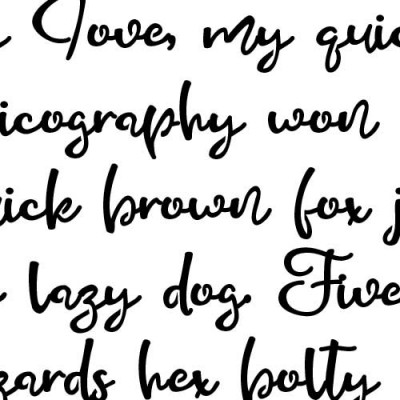 Jove, my quic
icography won
ick brown fox j
lazy dog. Five
zards hex bolty